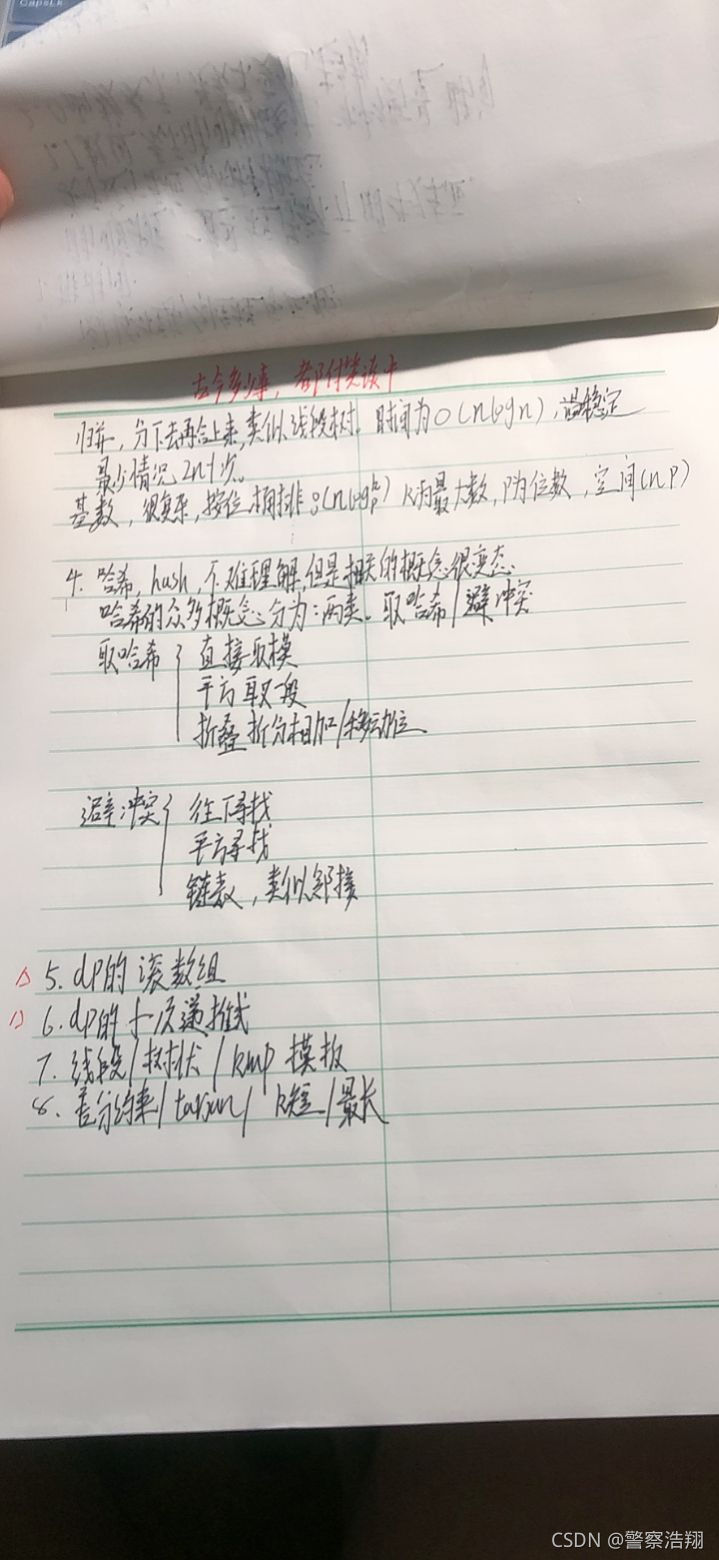 CapsLk
古今多少事，都付笑谈中
归并，分下去再合上来，类似线段树。时间为O(nlogn)，稳定
最少情况 2n+1次。
基数，很复杂，按位，桶排 O(nlog_p^k) k为最大数，P为位数，空间(np)
4. 哈希，hash，不难理解，但是相关的概念很变态
哈希的众多概念分为：两类。取哈希/避冲突
取哈希 直接取模
平方取段
折叠 拆分相加/移动位
避冲突 往下寻找
平方寻找
链表，类似邻接
5. dp的滚数组
6. dp的十一项递推式
7. 线段/树状/kmp 模板
8. 差分约束/tarjan/ k短/最长
CSDN @警察浩翔